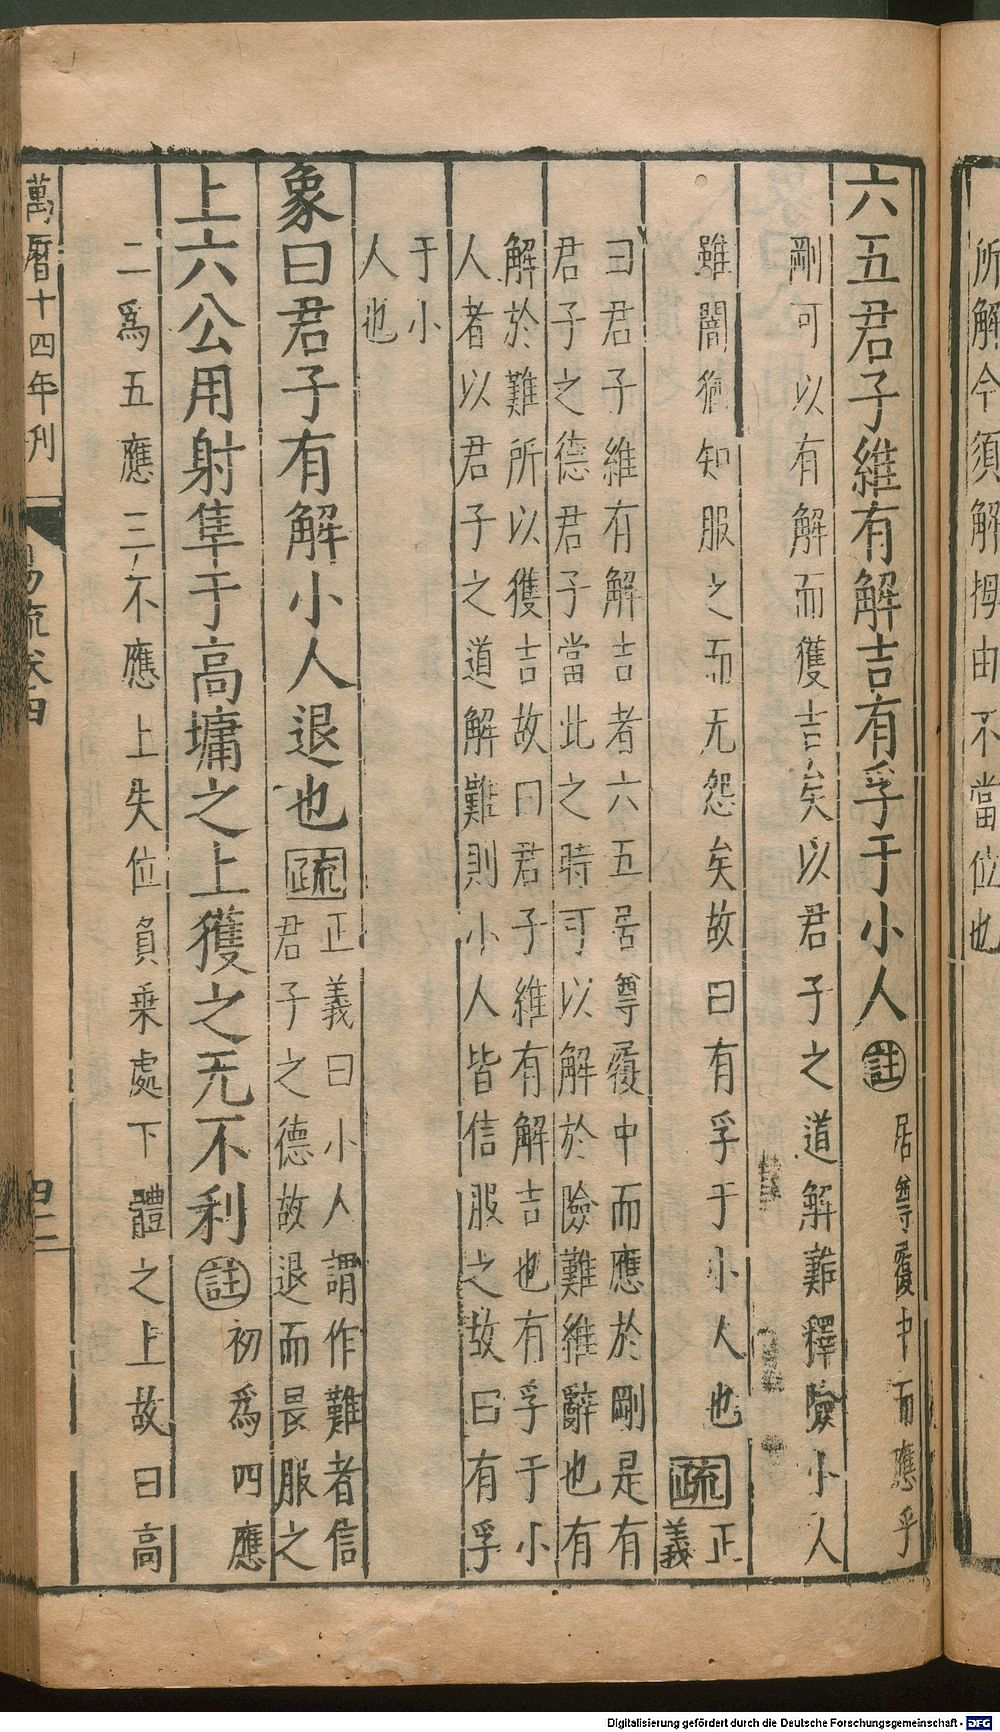 所解令須解拇由不當位也
六五君子維有解吉有孚于小人註居尊履中而應乎
剛可以有解而獲吉矣以君子之道解難釋險小人
雖闇猶知服之而无怨矣故曰有孚于小人也疏正
義
曰君子維有解吉者六五居尊履中而應於剛是有
君子之德君子當此之時可以解於險難維辭也有
解於難所以獲吉故曰君子維有解吉也有孚于小
人者以君子之道解難則小人皆信服之故曰有孚
于小
人也
象曰君子有解小人退也疏正義曰小人謂作難者信
君子之德故退而畏服之
上六公用射隼于高墉之上獲之无不利註初為四應
二爲五應三不應上失位負乗處下體之上故曰高
萬曆十四年刊
易疏卷四
四二
Digitalisierung gefördert durch die Deutsche Forschungsgemeinschaft - DFG